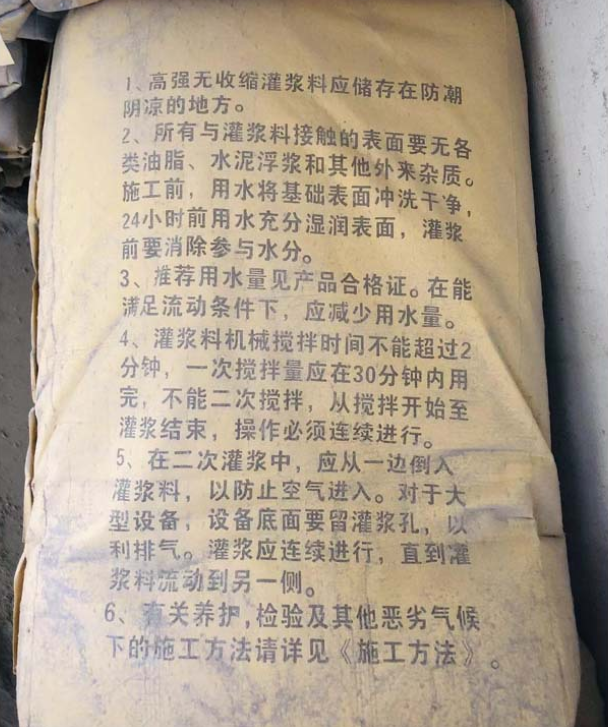 1、高强无收缩灌浆料应储存在防潮
阴凉的地方。
2、所有与灌浆料接触的表面要无各
类油脂、水泥浮浆和其他外来杂质。
施工前，用水将基础表面冲洗干净，
24小时前用水充分湿润表面，灌浆
前要消除参与水分。
3、推荐用水量见产品合格证。在能
满足流动条件下，应减少用水量。
4、灌浆料机械搅拌时间不能超过2
分钟，一次搅拌量应在30分钟内用
完，不能二次搅拌，从搅拌开始至
灌浆结束，操作必须连续进行。
5、在二次灌浆中，应从一边倒入
灌浆料，以防止空气进入。对于大
型设备，设备底面要留灌浆孔，以
利排气。灌浆应连续进行，直到灌
浆料流动到另一侧。
6、有关养护,检验及其他恶劣气候
下的施工方法请详见《施工方法》。